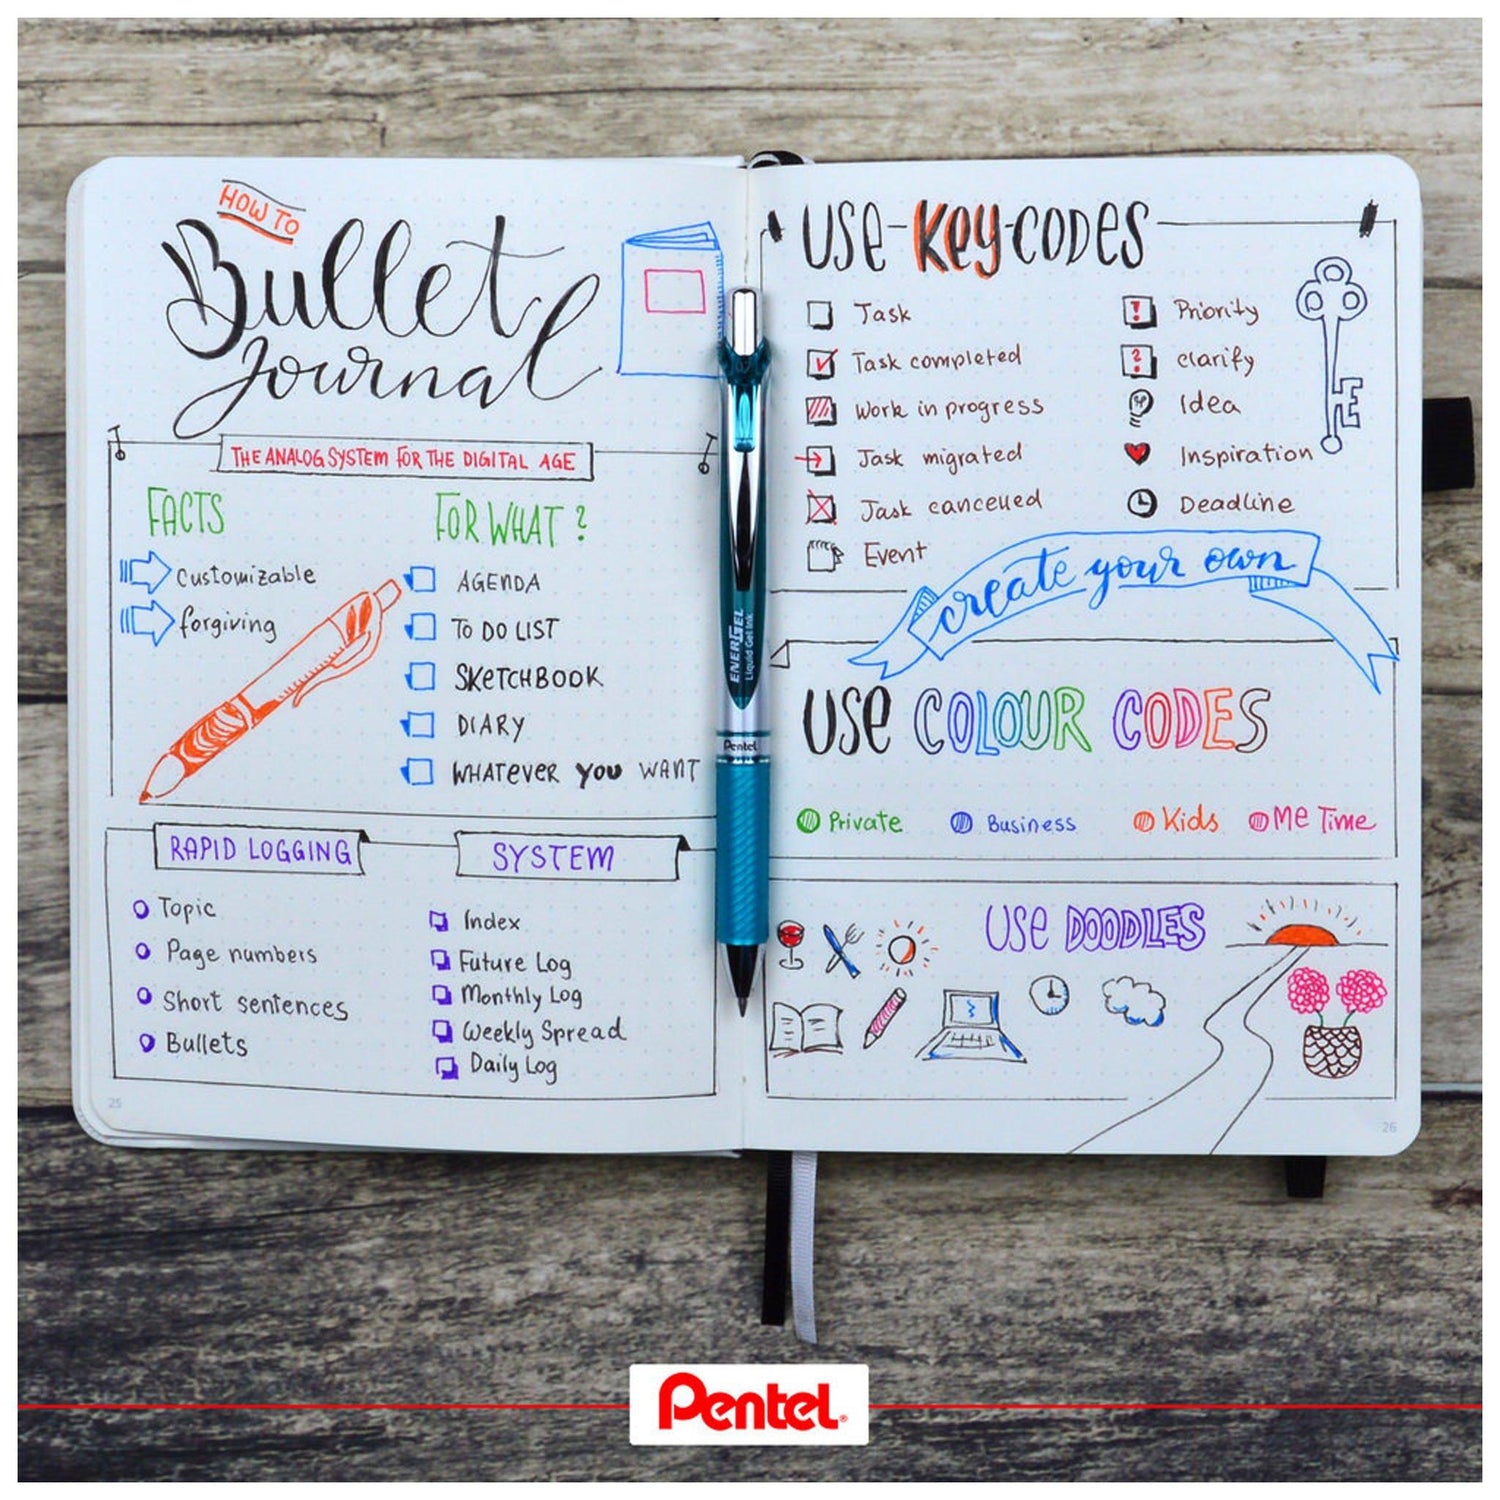 HOW TO
Bullet
Journal
THE ANALOG SYSTEM FOR THE DIGITAL AGE
FACTS
customizable
forgiving
FOR WHAT?
AGENDA
TO DO LIST
SKETCHBOOK
DIARY
WHATEVER YOU WANT
RAPID LOGGING
Topic
Page numbers
Short sentences
Bullets
SYSTEM
Index
Future Log
Monthly Log
Weekly Spread
Daily Log
25
ENERGEL
Liquid Gel Ink
Pentel
USE-KEY-CODES
Task
Task completed
Work in progress
Task migrated
Task cancelled
Event
! Priority
? clarify
Idea
Inspiration
Deadline
create your own
USE COLOUR CODES
Private Business Kids Me Time
USE DOODLES
26
Pentel®